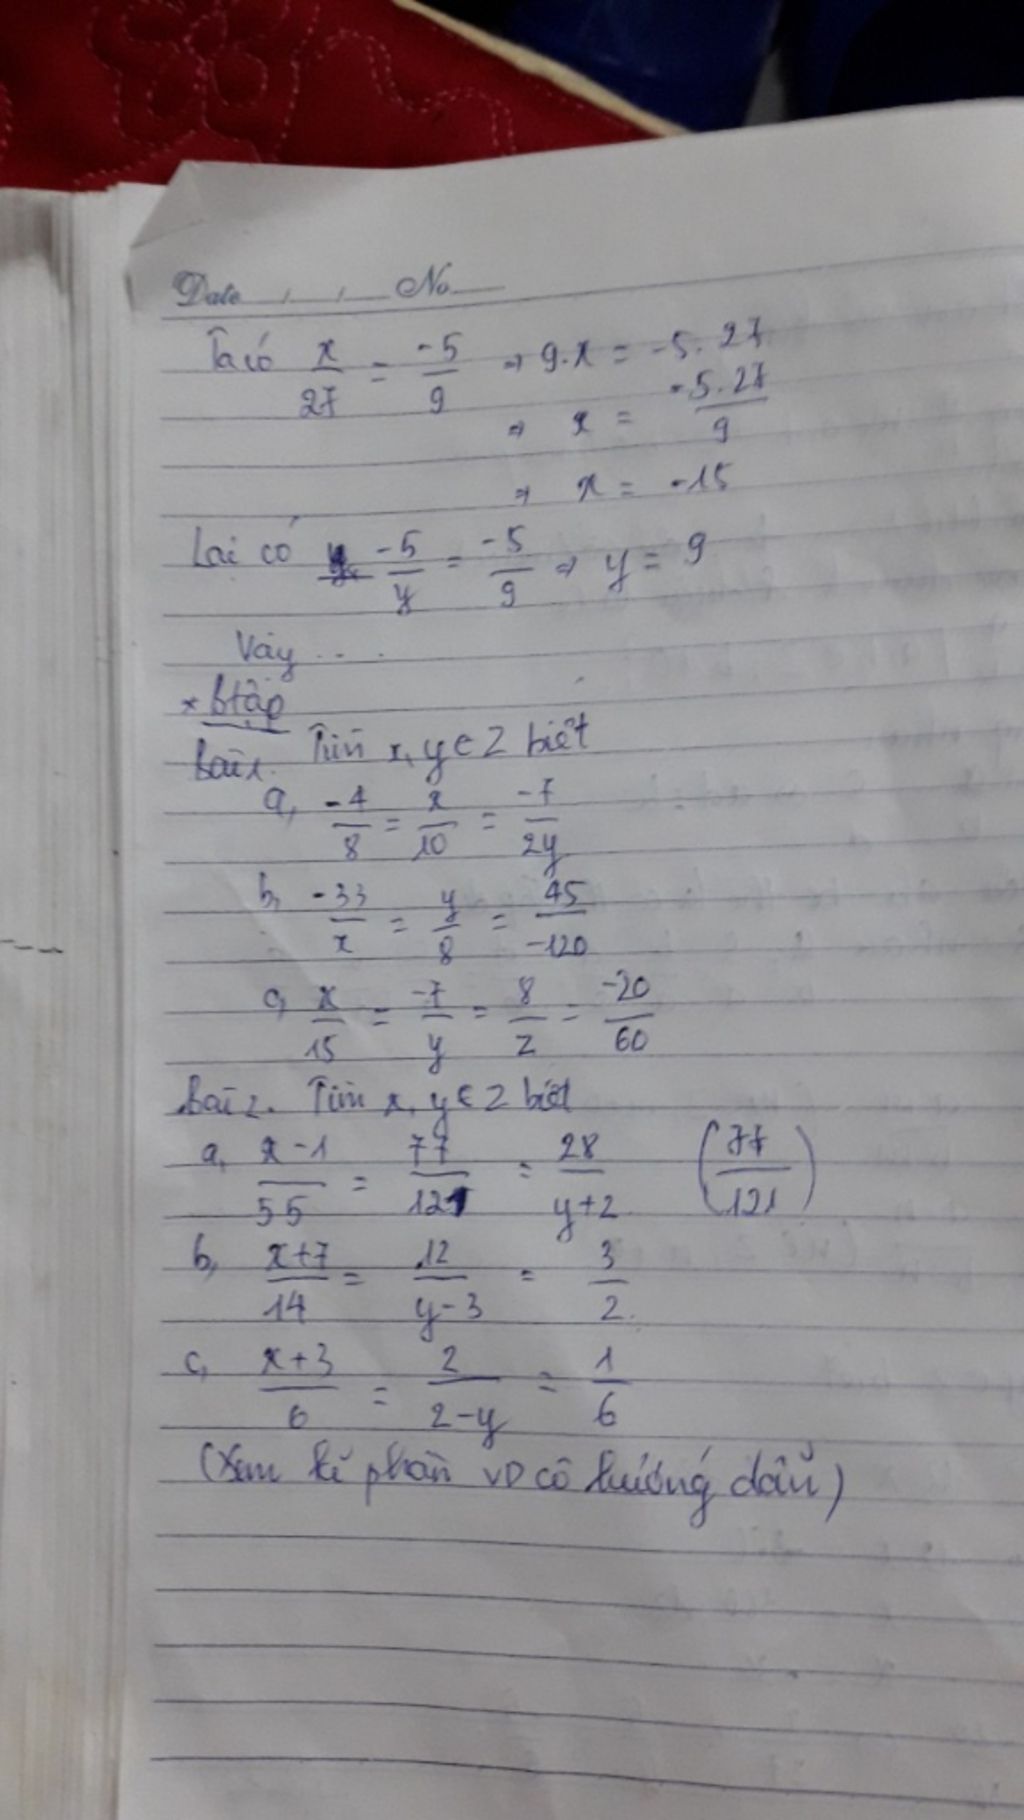 Date / / No
Ta có x/27 = -5/9 ⇒ 9.x = -5.27
⇒ x = -5.27/9
⇒ x = -15
Lại có -5/y = -5/9 ⇒ y = 9
Vậy ...
* Btập
Bài 1. Tìm x, y ∈ Z biết
a, -4/8 = x/10 = -7/2y
b, -33/x = y/8 = 45/-120
c, x/15 = -7/y = 8/z = -20/60
Bài 2. Tìm x, y ∈ Z biết
a, x-1/55 = 77/121 = 28/y+2 (77/121)
b, x+7/14 = 12/y-3 = 3/2.
c, x+3/6 = 2/2-y = 1/6
(Xem kĩ phần VD cô hướng dẫn)